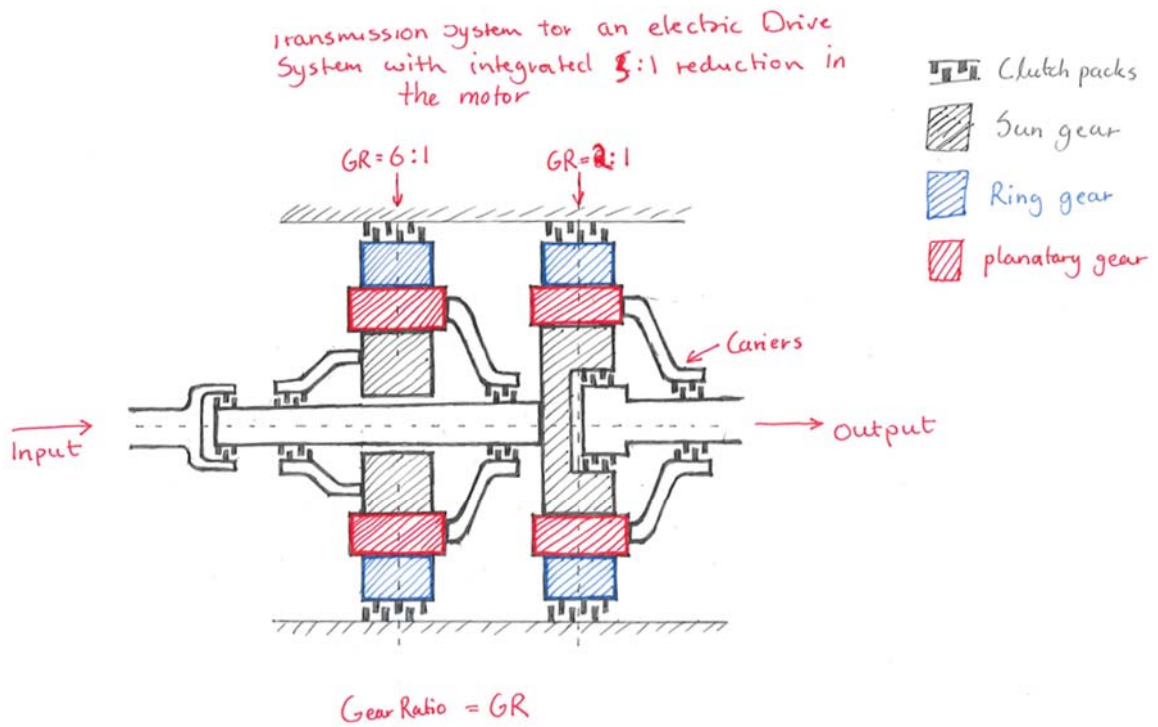 Transmission System for an electric Drive
System with integrated 5:1 reduction in
the motor
Clutch packs
Sun gear
Ring gear
planatary gear
GR=6:1
GR=2:1
Carriers
Input
Output
Gear Ratio = GR